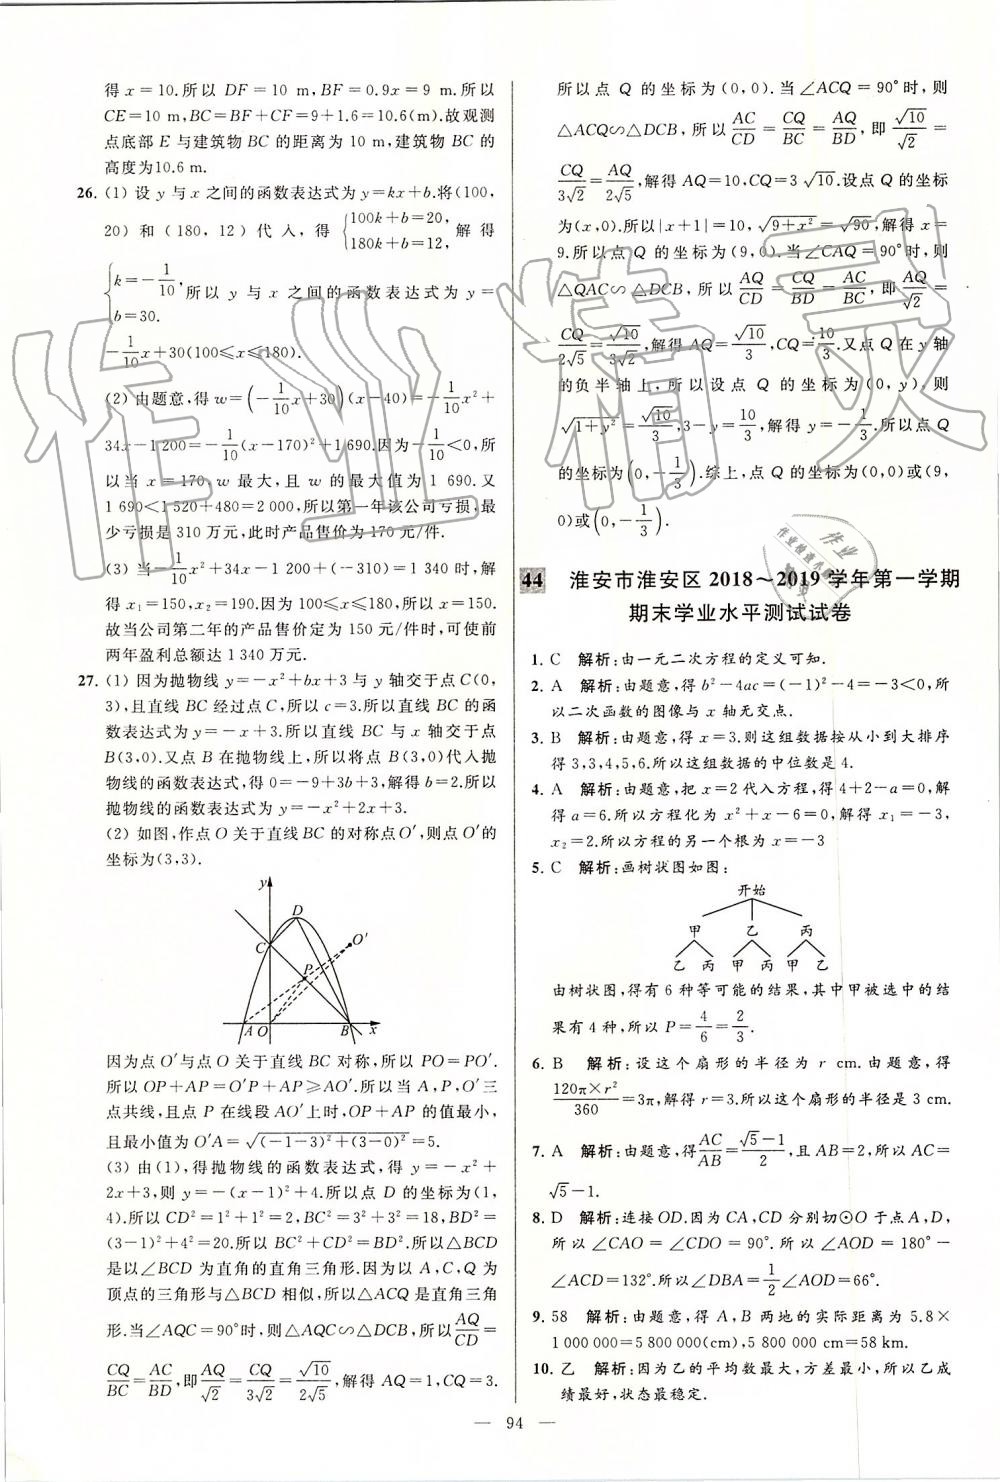 得 x=10.所以 DF=10 m,BF=0.9x=9 m.所以
CE=10 m,BC=BF+CF=9+1.6=10.6(m).故观测
点底部 E 与建筑物 BC 的距离为 10 m,建筑物 BC 的
高度为10.6 m.
26. (1) 设 y 与 x 之间的函数表达式为 y=kx+b.将(100,
20) 和 (180, 12) 代入, 得 {100k+b=20, 180k+b=12, 解得
{k=-1/10, b=30. 所以 y 与 x 之间的函数表达式为 y=
-1/10x+30(100≤x≤180).
(2) 由题意,得 w=(-1/10x+30)(x-40)=-1/10x²+
34x-1 200=-1/10(x-170)²+1 690.因为-1/10<0,所
以当 x=170, w 最大, 且 w 的最大值为 1 690. 又
1 690<1 520+480=2 000,所以第一年该公司亏损,最
少亏损是 310 万元,此时产品售价为 170 元/件.
(3) 当-1/10x²+34x-1 200+(-310)=1 340 时,解
得 x₁=150,x₂=190.因为 100≤x≤180,所以 x=150.
故当公司第二年的产品售价定为 150 元/件时,可使前
两年盈利总额达 1 340 万元.
27. (1) 因为抛物线 y=-x²+bx+3 与 y 轴交于点 C(0,
3),且直线 BC 经过点 C,所以 c=3.所以直线 BC 的函
数表达式为 y=-x+3.所以直线 BC 与 x 轴交于点
B(3,0).又点 B 在抛物线上,所以将点 B(3,0)代入抛
物线的函数表达式,得 0=-9+3b+3,解得 b=2.所以
抛物线的函数表达式为 y=-x²+2x+3.
(2) 如图,作点 O 关于直线 BC 的对称点 O′,则点 O′的
坐标为(3,3).
y
D
C
O′
P
A O B x
因为点 O′与点 O 关于直线 BC 对称,所以 PO=PO′.
所以 OP+AP=O′P+AP≥AO′.所以当 A,P,O′三
点共线,且点 P 在线段 AO′上时,OP+AP 的值最小,
且最小值为 O′A=√((-1-3)²+(3-0)²)=5.
(3) 由(1),得抛物线的函数表达式为 y=-x²+
2x+3,则 y=-(x-1)²+4.所以点 D 的坐标为(1,
4).所以 CD²=1²+1²=2,BC²=3²+3²=18,BD²=
(3-1)²+4²=20.所以 BC²+CD²=BD².所以△BCD
是以∠BCD 为直角的直角三角形.因为以 A,C,Q 为
顶点的三角形与△BCD 相似,所以△ACQ 是直角三角
形.当∠AQC=90°时,则△AQC∽△DCB,所以AQ/CD=
CQ/BC=AC/BD,即AQ/√2=CQ/3√2=√10/2√5,解得 AQ=1,CQ=3.
所以点 Q 的坐标为(0,0).当∠ACQ=90°时,则
△ACQ∽△DCB,所以AC/CD=CQ/BC=AQ/BD,即√10/√2=
CQ/3√2=AQ/2√5,解得 AQ=10,CQ=3√10.设点 Q 的坐标
为(x,0).所以|x+1|=10,√(9+x²)=√90,解得 x=
9.所以点 Q 的坐标为(9,0).当∠CAQ=90°时,则
△QAC∽△DCB,所以AQ/CD=CQ/BD=AC/BC,即AQ/√2=
CQ/2√5=√10/3√2,解得 AQ=√10/3,CQ=10/3.又点 Q 在 y 轴
的负半轴上,所以设点 Q 的坐标为(0,y).则
√(1+y²)=√10/3,3-y=10/3,解得 y=-1/3.所以点 Q
的坐标为(0,-1/3).综上,点 Q 的坐标为(0,0)或(9,
0)或(0,-1/3).
44 淮安市淮安区 2018~2019 学年第一学期
期末学业水平测试试卷
1. C 解析:由一元二次方程的定义可知.
2. A 解析:由题意,得 b²-4ac=(-1)²-4=-3<0,所
以二次函数的图像与 x 轴无交点.
3. B 解析:由题意,得 x=3.则这组数据按从小到大排序
得 3,3,4,5,6.所以这组数据的中位数是 4.
4. A 解析:由题意,把 x=2 代入方程,得 4+2-a=0,解
得 a=6.所以方程化为 x²+x-6=0,解得 x₁=-3,
x₂=2.所以方程的另一个根为 x=-3
5. C 解析:画树状图如图:
开始
甲 乙 丙
乙 丙 甲 丙 甲 乙
由树状图,得有 6 种等可能的结果,其中甲被选中的结
果有 4 种,所以 P=4/6=2/3.
6. B 解析:设这个扇形的半径为 r cm.由题意,得
120π×r²/360=3π,解得 r=3.所以这个扇形的半径是 3 cm.
7. A 解析:由题意,得AC/AB=(√5-1)/2,且 AB=2,所以 AC=
√5-1.
8. D 解析:连接 OD.因为 CA,CD 分别切⊙O 于点 A,D,
所以∠CAO=∠CDO=90°.所以∠AOD=180°-
∠ACD=132°.所以∠DBA=1/2∠AOD=66°.
9. 58 解析:由题意,得 A,B 两地的实际距离为 5.8×
1 000 000=5 800 000(cm),5 800 000 cm=58 km.
10. 乙 解析:因为乙的平均数最大,方差最小,所以乙成
绩最好,状态最稳定.
— 94 —
作业精灵
作业